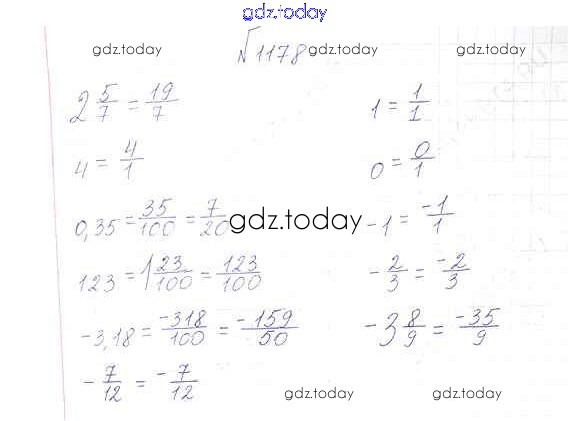 gdz.today
№1178
gdz.today gdz.today gdz.today
2 5/7 = 19/7
1 = 1/1
4 = 4/1
0 = 0/1
0,35 = 35/100 = 7/20
gdz.today
-1 = -1/1
123 = 1 23/100 = 123/100
-2/3 = -2/3
-3,18 = -318/100 = -159/50
-3 8/9 = -35/9
-7/12 = -7/12
gdz.today gdz.today